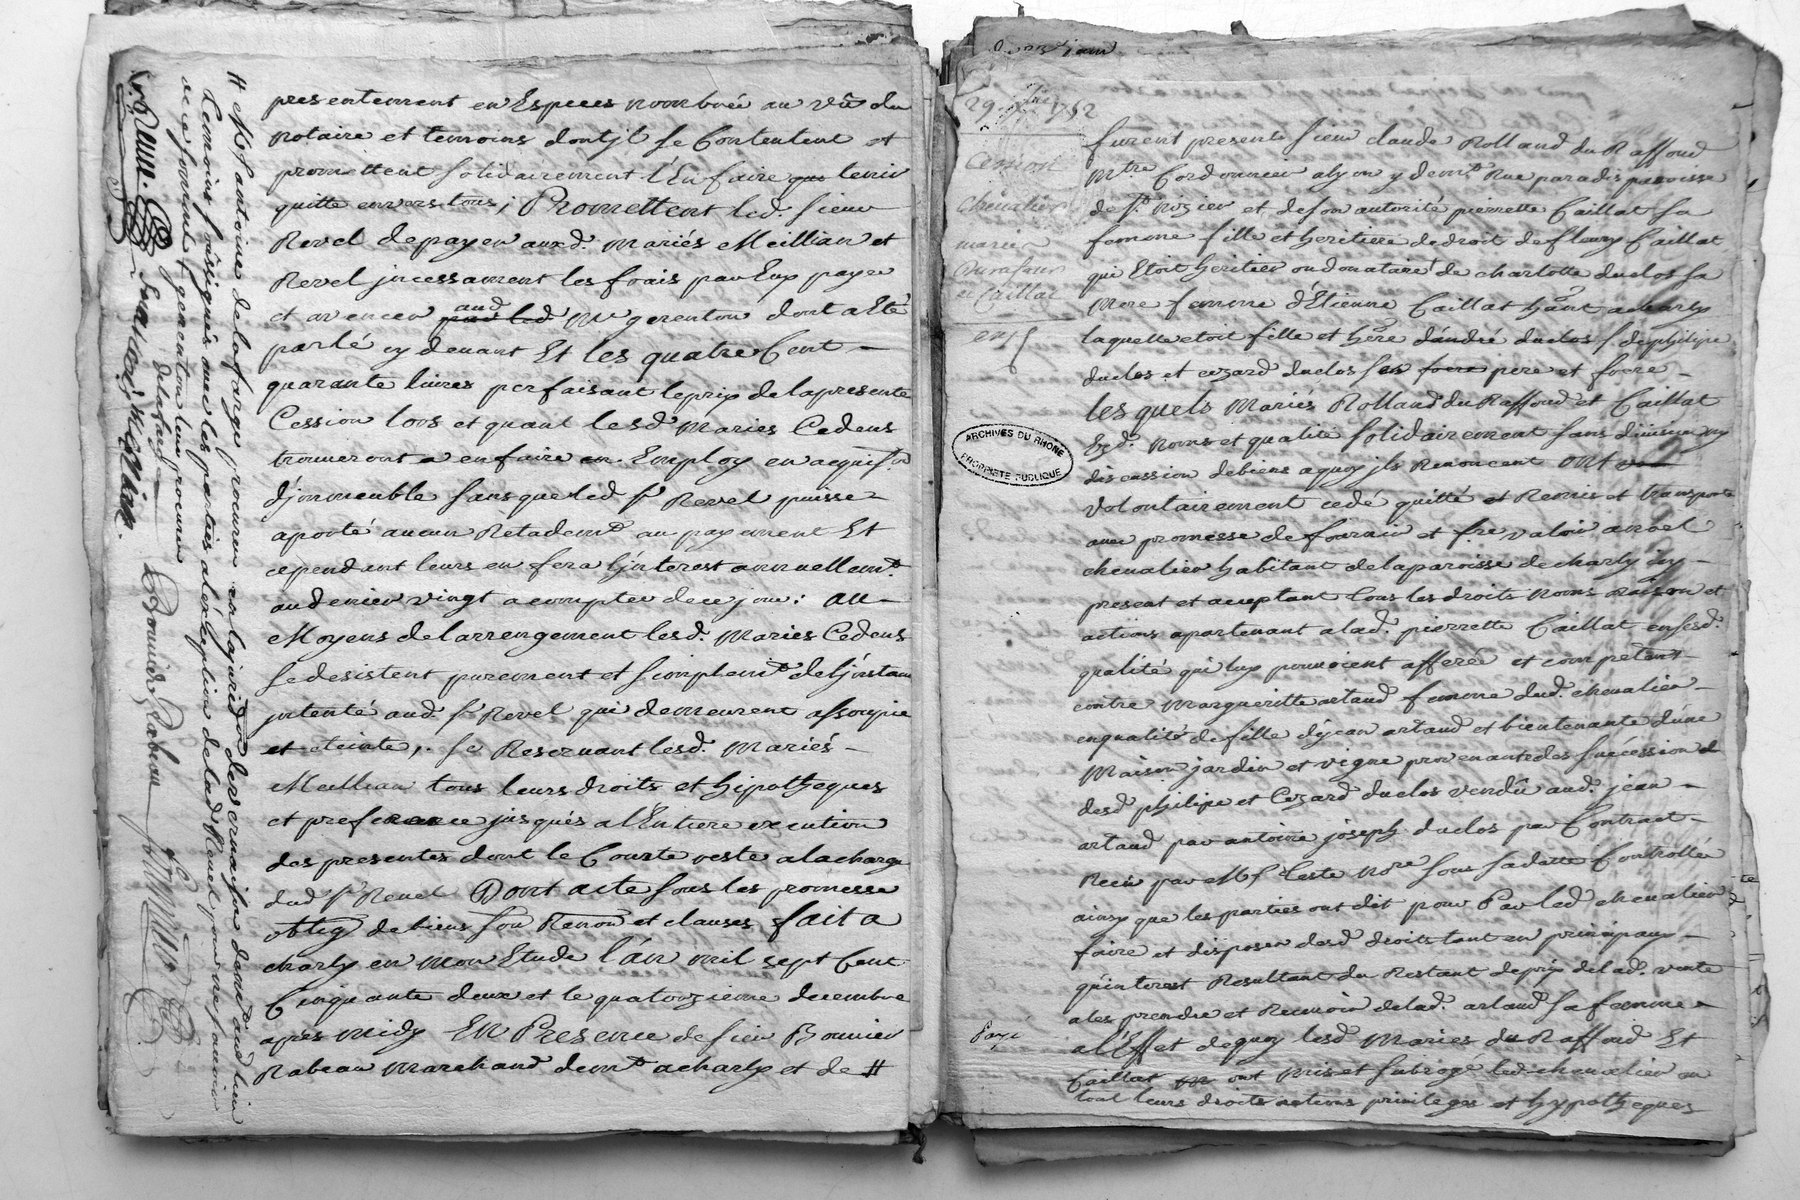 presentement en Especes nombrée au vû du
notaire et temoins dont jl se Contentent et
promettent solidairement l'En faire tenir
quitte envers tous; Promettent led. sieur
Revel de payer auxd. Mariés Meillian et
Revel jncessament les frais par Eux payer
et avencer aud. Me gerenton dont a Eté
parlé cy devant Et les quatre Cent
quarante livres perfaisant le prix de la presente
Cession lors et quant lesd. Maries Cedens
trouveront a en faire Employ en acquison
d'jmmeuble sans que led. sr Revel puisse
aporté aucun Retademt au payement Et
cependant leurs en fera l'jnterest annuellemt
au denier vingt a compter de ce jour: au
Moyens de l'arrengement lesd. Maries Cedens
se desistent purement et simplemt de l'jnstan
jntenté aud. sr Revel qui demeurent assoupie
et eteinte, se Reservant lesd. Mariés
Meillian tous leurs droits et hipotheques
et preference jusqués a l'Entiere execution
des presentes dont le Coute reste a la charge
dud. sr Revel Dont acte sous les promesse
oblig de biens sou Renon et clauses, fait a
charly en mon Etude l'an mil sept Cent
Cinquante deux et le quatorzieme decembre
après midy En Presence de sieur Bonnier
Rabeau Marchand demt a charly et de #
# Me antoine delafarge procureur en la juridon de vernaison demt aud. lieu
Temoins soussignés avec les parties a l'exception de lad. Revel pour ne savoir
de ce sommée, gerenton leur procureur
delafarge
Revel
Bonnier Rabeau
29 1752
Cession
Chevalier
mariés
Durafour
et Caillat
Exp
furent present sieur claude Rolland du Raffour
Mtre Cordonnier a lyon y demt Rue paradis paroisse
de st. nizier et de son autorité pierrette Caillat sa
femme fille et heritiere de droit de fleury Caillat
qui Etoit heritier ou donataire de charlotte duclos sa
Mere femme d'Etienne Caillat hant a charly
laquelle etoit fille et here d'andré duclos f. de philipe
duclos et cezard duclos ses pere et frere
lesquels Mariés Rolland du Raffour et Caillat
Esd. noms et qualité solidairement sans division ny
discussion de biens a quoy jls Renoncent ont
volontairement cedé quitté et Remis et transporté
avec promesse de fournir et fre valoir a noel
chevalier habitant de la paroisse de charly jcy
present et aceptant tous les droits noms Raison et
actions apartenant a lad. pierrette Caillat en sesd.
qualité qui luy pouvoient afferée et competent
contre Margueritte artaud femme dud. chevalier
en qualité de fille de jean artaud et bientenante d'une
Maison jardin et vigne provenante des succession de
desd philipe et Cezard duclos vendû aud. jean
artaud par antoine joseph duclos par Contract
Recû par Me Teste nore sous sa datte Controllée
ainsy que les parties ont dit pour Par led chevalier
faire et disposer desd droits tant en principaux
qu'interest Resultant du Restant de prix de lad. vente
a les prendre et Recevoir de lad. artaud sa femme
a l'Effet de quoy lesd Maries du Raffour Et
Caillat ont mis et subrogé led. chevalier en
tout leurs droits actions privileges et hypotheques
Payé
ARCHIVES DU RHONE
PROPRIETE PUBLIQUE